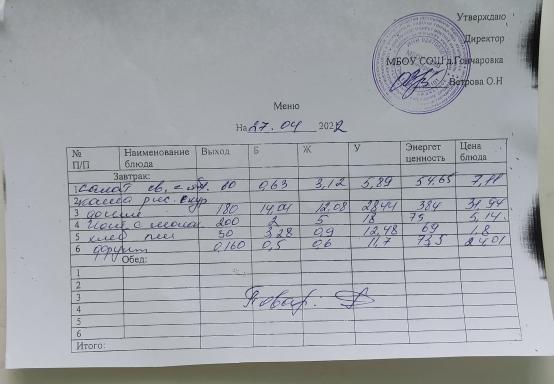 Утверждаю
Директор
МБОУ СОШ д.Гончаровка
Вотрова О.Н
Меню
На 27.04 2022
№ П/П Наименование блюда Выход Б Ж У Энергет ценность Цена блюда
Завтрак:
1 Салат св. с 60 0,63 3,12 5,89 54,65 7,11
2 каша рис. с кур
3 180 14,01 12,08 28,44 384 31,94
4 чай с молок. 200 2 5 18 75 5,14
5 хлеб пш 30 3,28 0,9 12,48 69 1,8
6 фрукт 0,160 0,5 0,6 11,7 73,5 24,01
Обед:
1
2
3
4
5
6
Повар:
Итого: